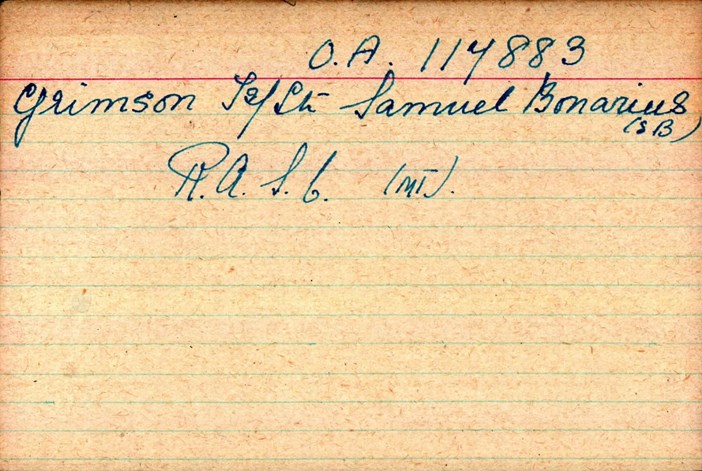 O.A. 117883
Grimson Ty/Lt Samuel Bonarius
(S B)
R.A.S.C. (MT).